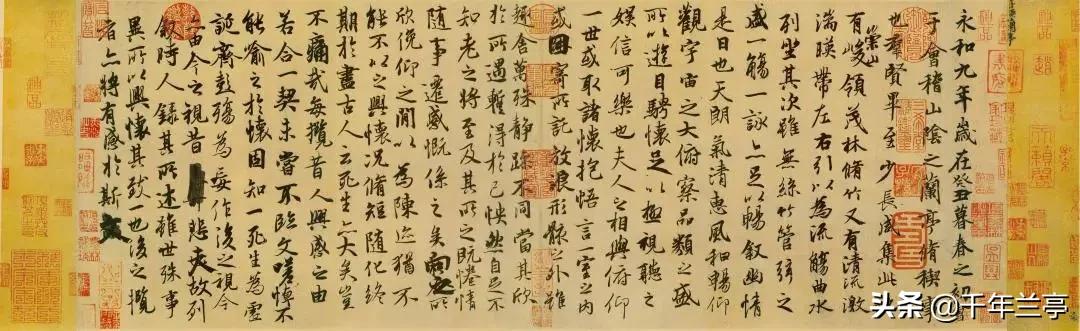 永和九年歲在癸丑暮春之初會
于會稽山陰之蘭亭脩稧事
也羣賢畢至少長咸集此地
有崇山峻領茂林脩竹又有清流激
湍暎帶左右引以為流觴曲水
列坐其次雖無絲竹管弦之
盛一觴一詠亦足以暢叙幽情
是日也天朗氣清惠風和暢仰
觀宇宙之大俯察品類之盛
所以遊目騁懷足以極視聽之
娛信可樂也夫人之相與俯仰
一世或取諸懷抱悟言一室之內
或因寄所託放浪形骸之外雖
趣舍萬殊靜躁不同當其欣
於所遇蹔得於己怏然自足不
知老之將至及其所之既惓情
隨事遷感慨係之矣向之所
欣俛仰之閒以為陳迹猶不
能不以之興懷況脩短隨化終
期於盡古人云死生亦大矣豈
不痛哉每攬昔人興感之由
若合一契未嘗不臨文嗟悼不
能喻之於懷固知一死生為虛
誕齊彭殤為妄作後之視今
亦由今之視昔悲夫故列
叙時人錄其所述雖世殊事
異所以興懷其致一也後之攬
者亦將有感於斯文
头条 @千年兰亭